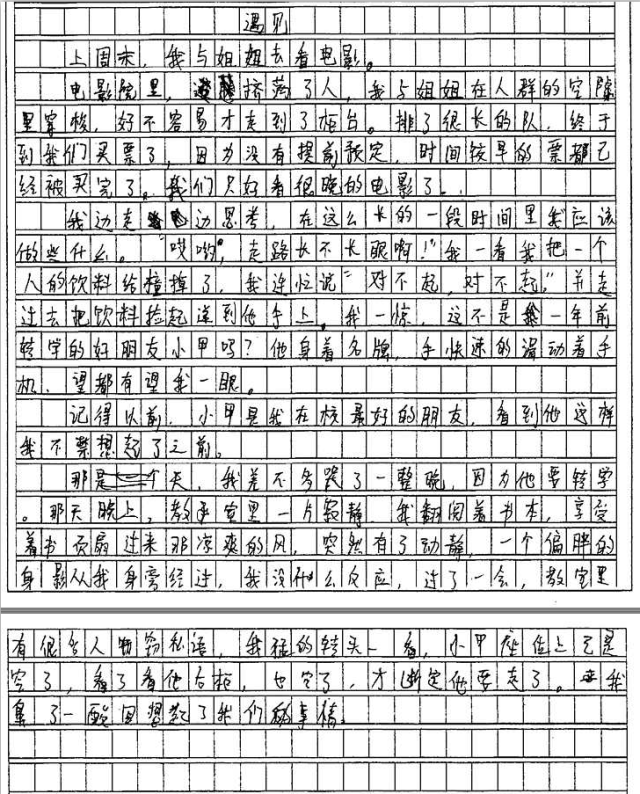 遇见
上周末，我与姐姐去看电影。
电影院里，挤满了人，我与姐姐在人群的空隙
里穿梭，好不容易才走到了柜台。排了很长的队，终于
到我们买票了，因为没有提前预定，时间较早的票都已
经被买完了。我们只好看很晚的电影了。
我边走边思考，在这么长的一段时间里我应该
做些什么。“哎哟，走路长不长眼啊！”我一看我把一个
人的饮料给撞掉了，我连忙说“对不起，对不起，”并走
过去把饮料捡起送到他手上。我一惊，这不是一年前
转学的好朋友小甲吗？他身着名牌，手快速的滑动着手
机，望都有望我一眼。
记得以前，小甲是我在校最好的朋友，看到他这样
我不禁想起了之前。
那是一个天，我差不多哭了一整晚，因为他要转学
。那天晚上，教室里一片寂静，我翻阅着书本，享受
着书页扇过来那凉爽的风，突然有了动静，一个偏胖的
身影从我身旁经过，我没什么反应，过了一会，教室里
有很多人窃私语，我猛的转头一看，小甲座位上已是
空了，看了看他右柜，也空了，才断定他要走了。我
鼻了一酸回想起了我们的事情。